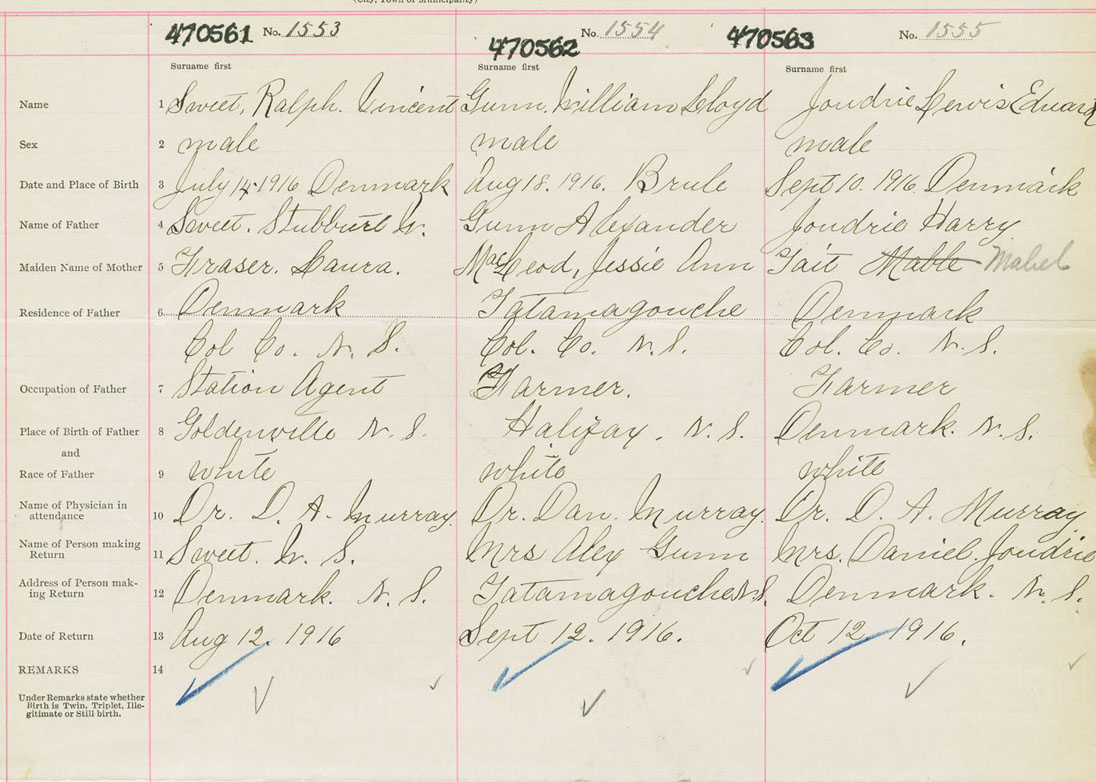 (City, Town or Municipality)
470561 No. 1553 470562 No. 1554 470563 No. 1555
Surname first Surname first Surname first
Name 1 Sweet, Ralph. Vincent Gunn, William Lloyd Joudrie Lewis Edward
Sex 2 male male male
Date and Place of Birth 3 July 14 1916 Denmark Aug 18. 1916. Brule Sept 10. 1916. Denmark
Name of Father 4 Sweet. Stubburt W. Gunn Alexander Joudrie Harry
Maiden Name of Mother 5 Fraser. Laura. MacLeod, Jessie Ann Tait Mable Mabel
Residence of Father 6 Denmark Tatamagouche Denmark
Col Co. N. S. Col. Co. N.S. Col. Co. N.S.
Occupation of Father 7 Station Agent Farmer. Farmer
Place of Birth of Father 8 Goldenville N.S. Halifax, N.S. Denmark. N.S.
and
Race of Father 9 white white white
Name of Physician in attendance 10 Dr. D. A. Murray. Dr. Dan. Murray. Dr. D. A. Murray
Name of Person making Return 11 Sweet. W. S. Mrs Alex Gunn Mrs. Daniel. Joudrie
Address of Person mak-ing Return 12 Denmark. N.S. Tatamagouche N.S. Denmark. N.S.
Date of Return 13 Aug 12. 1916 Sept 12. 1916. Oct 12 1916.
REMARKS 14
Under Remarks state whether
Birth is Twin, Triplet, Ille-
gitimate or Still birth.